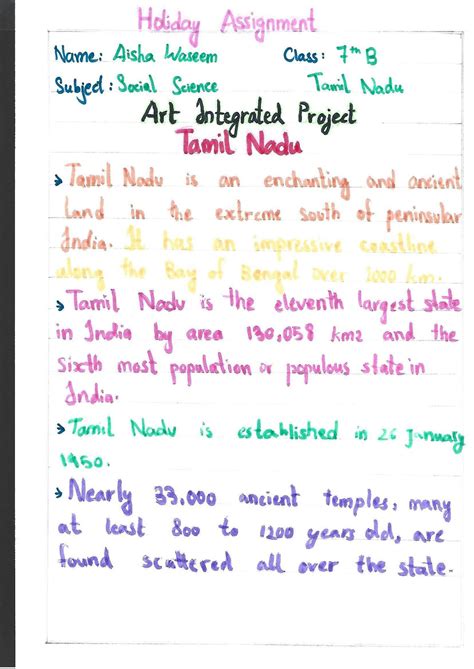 Holiday Assignment
Name: Aisha Waseem Class: 7th B
Subjed: Social Science Tamil Nadu
Art Integrated Project
Tamil Nadu
→ Tamil Nadu is an enchanting and ancient
land in the extreme south of peninsular
India. It has an impressive coastline
along the Bay of Bengal over 1000 km.
→ Tamil Nadu is the eleventh largest state
in India by area 130,058 km2 and the
sixth most population or populous state in
India.
→ Tamil Nadu is established in 26 January
1950.
→ Nearly 33,000 ancient temples, many
at least 800 to 1200 years old, are
found scattered all over the state.